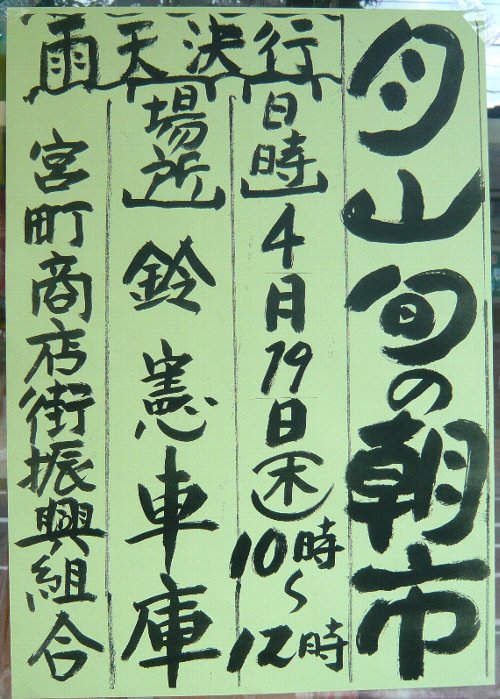 月山旬の朝市
雨天決行
日時
4月19日(木)10時~12時
場所
鈴憲車庫
宮町商店街振興組合